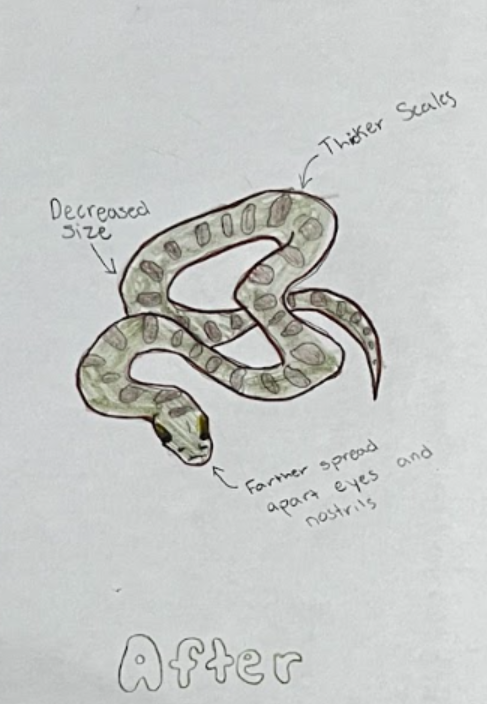 Thicker Scales
Decreased
size
Farther spread
apart eyes and
nostrils
After